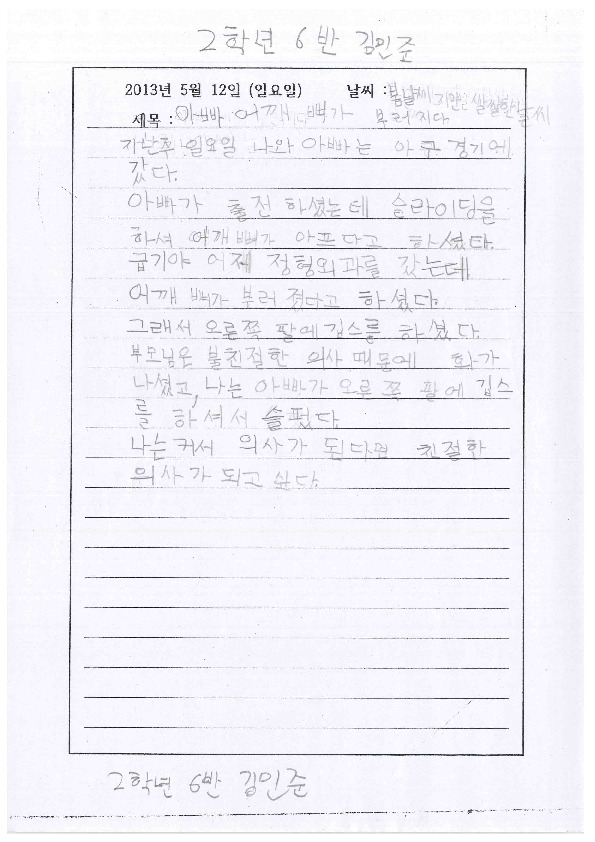 2학년 6반 김민준
2013년 5월 12일 (일요일) 날씨 : 봄날씨지만 쌀쌀한 날씨
제목 : 아빠 어깨 뼈가 부러지다.
지난주 일요일 나와 아빠는 야구 경기에
갔다.
아빠가 출전 하셨는데 슬라이딩을
하셔 어깨뼈가 아프다고 하셨다.
급기야 어제 정형외과를 갔는데
어깨 뼈가 부러 졌다고 하셨다.
그래서 오른쪽 팔에 깁스를 하셨다.
부모님은 불친절한 의사 때문에 화가
나셨고, 나는 아빠가 오른쪽 팔에 깁스
를 하셔서 슬펐다.
나는 커서 의사가 된다면 친절한
의사가 되고 싶다.
2학년 6반 김민준